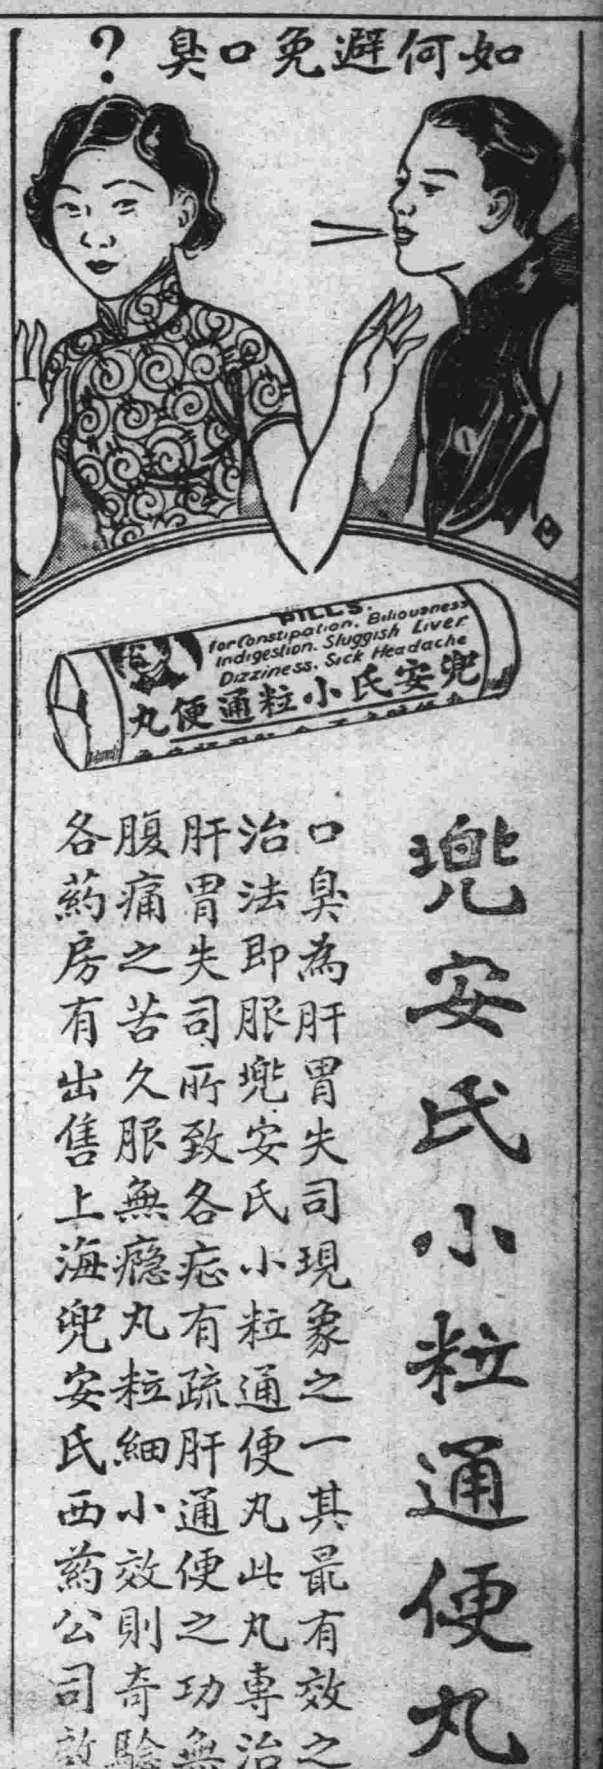 如何避免口臭？
PILLS.
for Constipation, Biliousness
Indigestion, Sluggish Liver
Dizziness, Sick Headache
兜安氏小粒通便丸
兜安氏小粒通便丸
口臭為肝胃失司現象之一其最有效之
治法即服兜安氏小粒通便丸此丸專治
肝胃失司所致各症有疏肝通便之功無
腹痛之苦久服無瘾丸粒細小效則奇驗
各葯房有出售上海兜安氏西葯公司啟